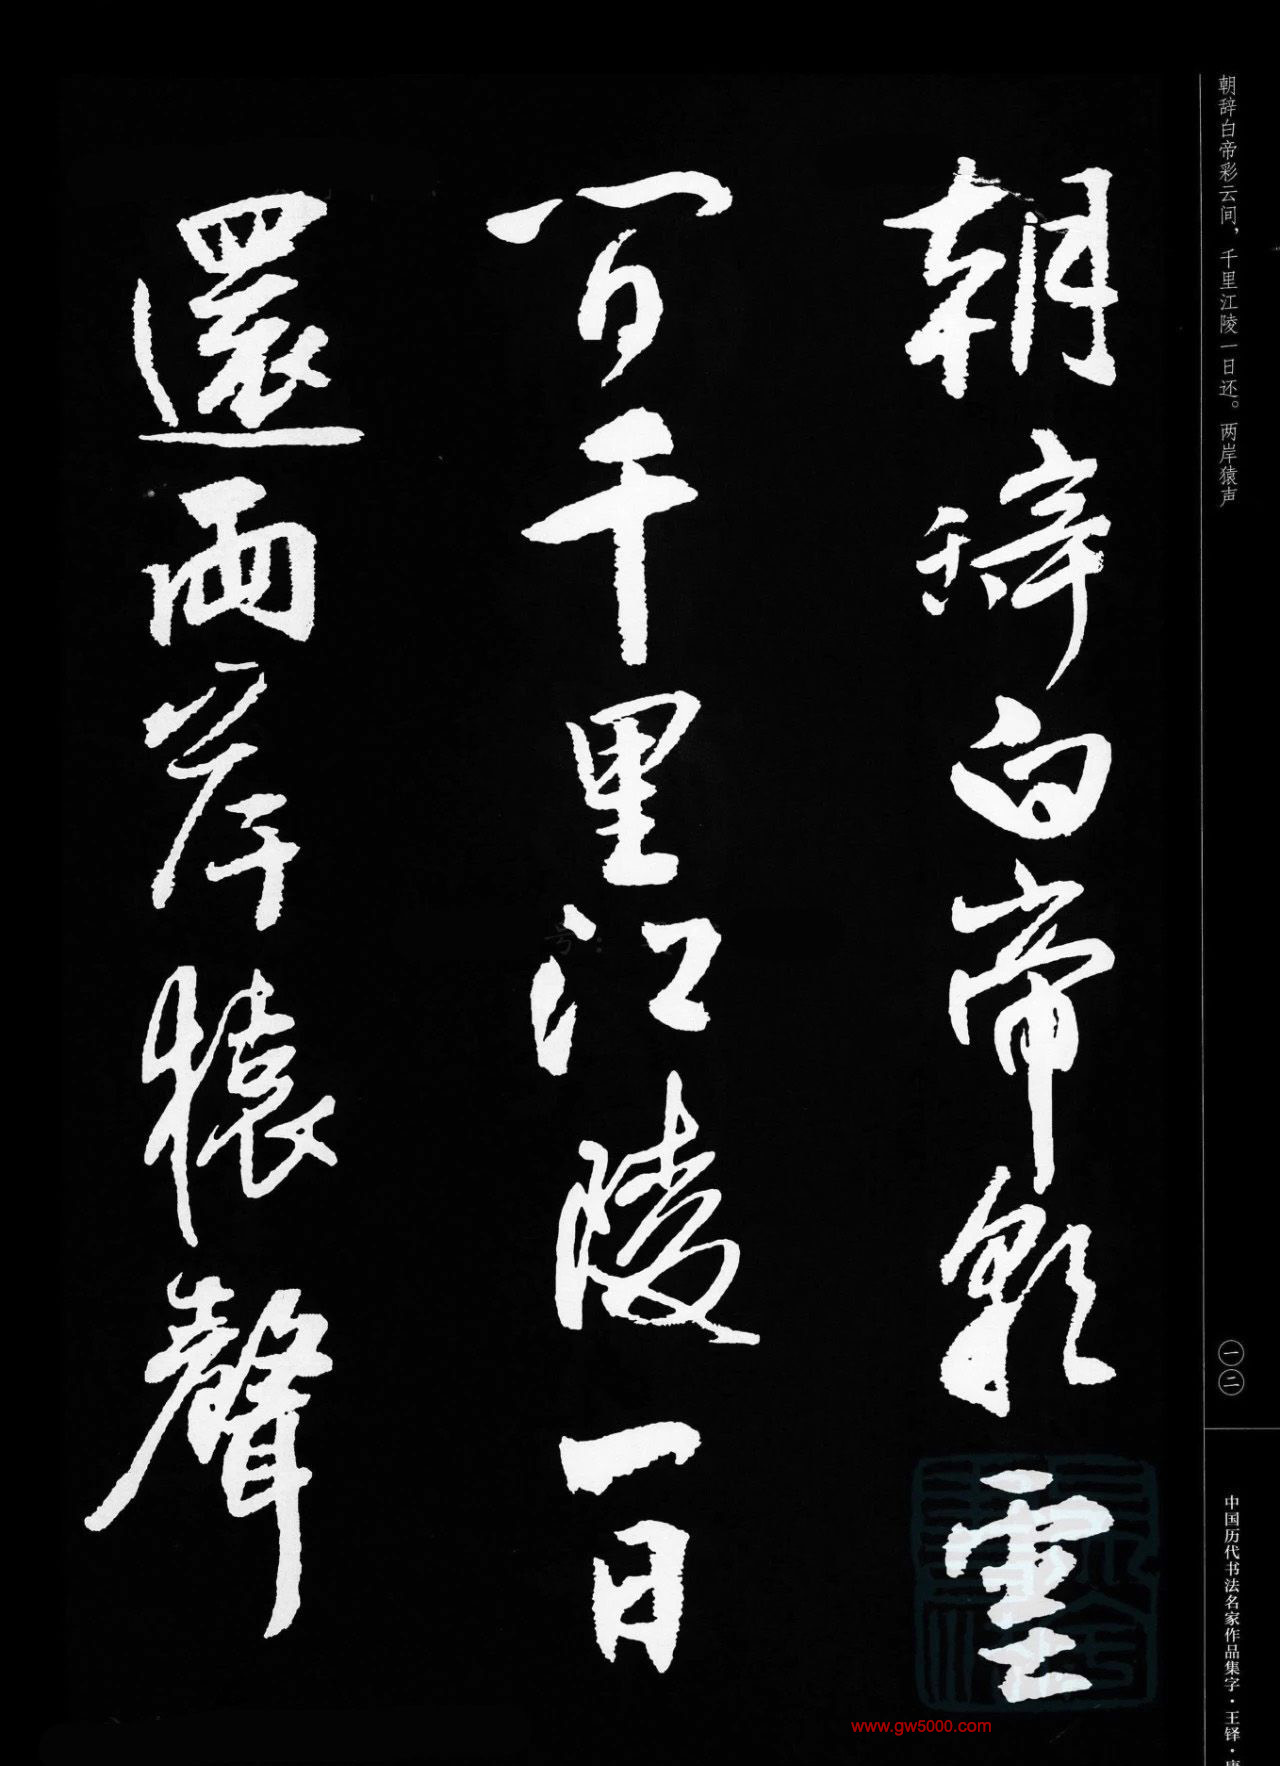 朝辞白帝彩云间，千里江陵一日还。两岸猿声
朝辭白帝彩雲
間千里江陵一日
還兩岸猿聲
一二
中国历代书法名家作品集字·王铎·
www.gw5000.com